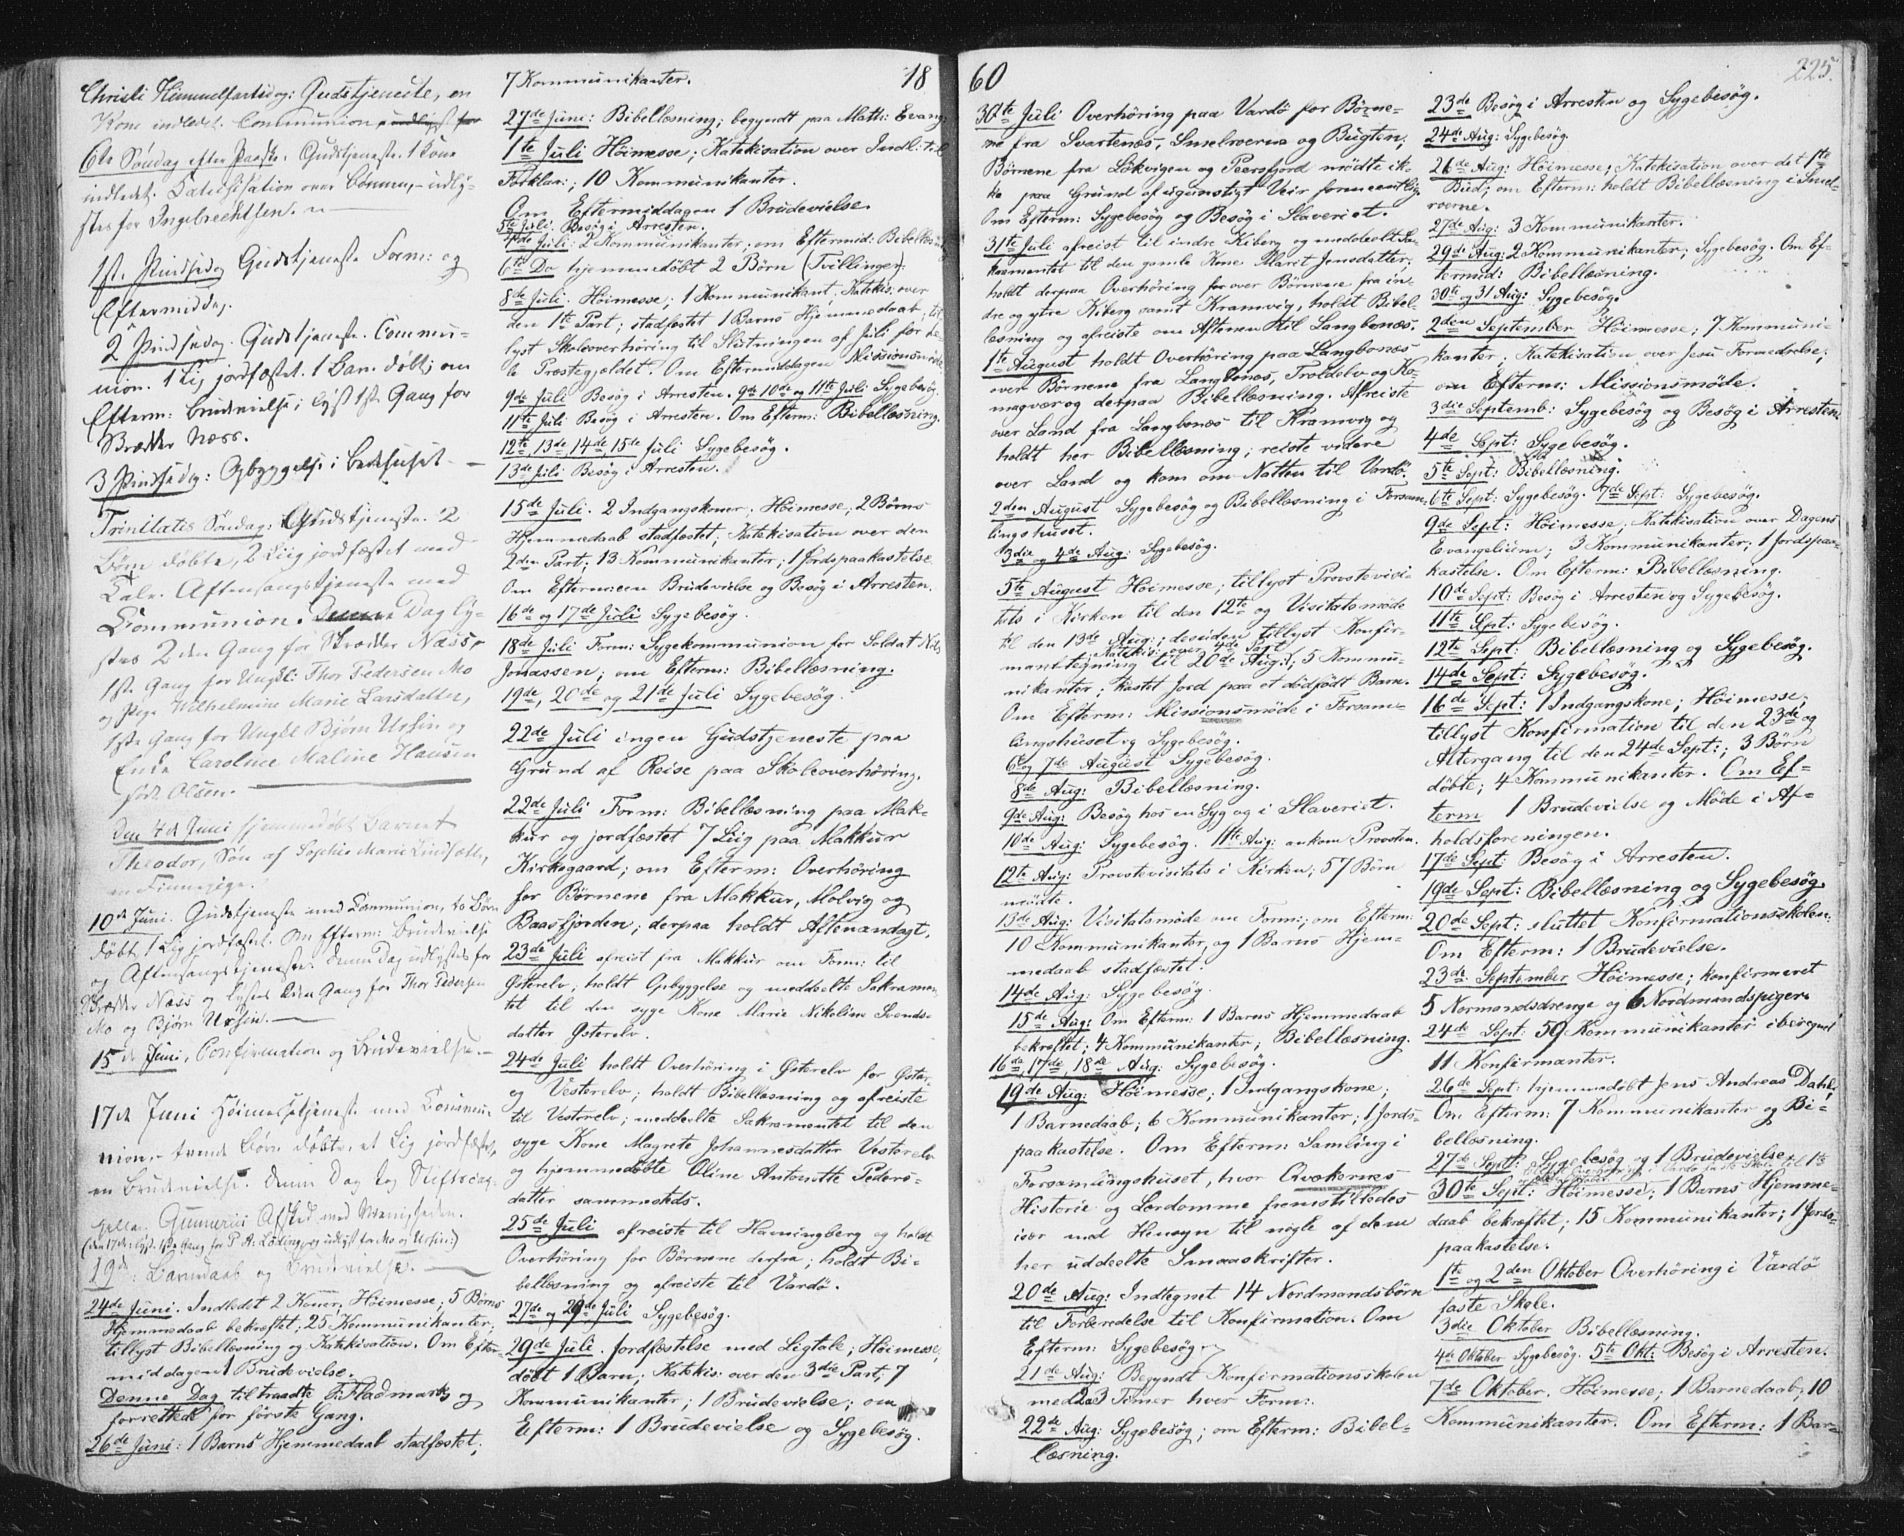 Christi Himmelfartsdag: Gudstjeneste, en
Kone indledet. Communion, udlyst for
6te Søndag efter Paaske. Gudstjeneste. 1 Kone
indledet. Catechisation over Bønnen, udly-
stes for Ingebrechtsen.
1ste Pindsedag Gudstjeneste Form: og
Eftermiddag.
2 Pindsedag. Gudstjeneste. Commu-
nion. 1 Lig jordfæstet. 1 Barn døbt; om
Efterm: Brudevielse; lyst 1ste Gang for
Skrædder Næss.
3 Pindsedag: Opbyggelse i Bedehuset.
Trinitatis Søndag: Gudstjeneste. 2
Børn døbte, 2 Liig jordfæstet med
Tale. Aftensangstjeneste med
Communion. Denne Dag ly-
stes 2den Gang for Skrædder Næss,
1ste Gang for Ungk: Thor Pedersen Mo
og Pige Wilhelmine Marie Larsdatter,
1ste Gang for Ungk Bjørn Ursin og
Enke Caroline Maline Hansen
født Olsen.
Den 4de Juni hjemmedøbt Barnet
Theodor, Søn af Sophie Marie
en Finnepige.
10de Juni. Gudstjeneste med Communion, to Børn
døbt, 1 Lig jordfæstet. Om Efterm: Brudevielse
og Aftensangstjeneste. Denne Dag udlystes for
Skrædder Næss og lystes 2den Gang for Thor Pedersen
Mo og Bjørn Ursin.
15de Juni, Confirmation og Brudevielse.
17de Juni Høimessetjeneste med Commu-
nion, trende Børn døbte, et Lig jordfæstet,
en Brudevielse. Denne Dag tog Stiftscap-
pellan Gunnerius Afsked med Menigheden.
(den 17de lyst 1ste Gang for P. A. Løding og udlyst for Mo og Ursin)
19de: Barnedaab og Brudevielse.
24de Juni. Indledet 2 Koner, Høimesse; 5 Børns
Hjemmedaab bekræftet; 25 Kommunikanter,
tillyst Bibellæsning og Katekisation. Om Efter-
middagen 1 Brudevielse.
Denne Dag tiltraadte Fr. Hadmark og
forrettede for første Gang.
26de Juni: 1 Barns Hjemmedaab stadfæstet;
7 Kommunikanter.
27de Juni: Bibellæsning; begyndt paa Math: Evang.
1te Juli Høimesse; Katekisation over Indl: til
Forklar:; 10 Kommunikanter.
Om Eftermiddagen 1 Brudevielse.
5te Juli: Besøg i Arresten.
4de Juli: 2 Kommunikanter; om Eftermid: Bibellæsning
6te Do hjemmedøbt 2 Børn (Tvillinger).
8de Juli. Høimesse; 1 Kommunikant, Katekis: over
den 1te Part; stadfæstet 1 Barns Hjemmedaab, til-
lyst Skoleoverhøring til Slutningen af Juli for he-
le Præstegjeldet. Om Eftermiddagen Missionsmøde
9de Juli Besøg i Arresten. 9de 10de og 11te Juli Sygebesøg.
11te Juli Besøg i Arresten. Om Efterm: Bibellæsning.
12te, 13de 14de 15de Juli Sygebesøg.
13de Juli Besøg i Arresten.
15de Juli. 2 Indgangskoner, Høimesse; 2 Børns
Hjemmedaab stadfæstet; Katekisation over den
2den Part; 13 Kommunikanter; 1 Jordspaakastelse.
Om Efterm: een Brudevielse og Besøg i Arresten.
16de og 17de Juli Sygebesøg.
18de Juli Form: Sygekommunion for Soldat Nils
Jonassen; om Efterm: Bibellæsning.
19de, 20de og 21de Juli Sygebesøg.
22de Juli ingen Gudstjeneste paa
Grund af Reise paa Skoleoverhøring.
22de Juli Form: Bibellæsning paa Mak-
kur og jordfæstet 7 Liig paa Makkur
Kirkegaard; om Efterm: Overhøring
for Børnene fra Makkur, Molvig og
Baasfjorden, derpaa holdt Aftenandagt.
23de Juli afreist fra Makkur om Form: til
Østerelv; holdt Opbyggelse og meddeelte Sakramen-
tet til den syge Kone Marie Nikeline Svends-
datter Østerelv.
24de Juli holdt Overhøring i Østerelv for Øster
og Vesterelv; holdt Bibellæsning og afreiste
til Vesterelv; meddeelte Sakramentet til den
syge Kone Magrete Johannesdatter Vesterelv
og hjemmedøbte Oline Antonette Peders-
datter sammesteds.
25de Juli afreiste til Havningberg og holdt
Overhøring for Børnene derfra; holdt Bi-
bellæsning og afreiste til Vardø.
27de og 28de Juli Sygebesøg.
29de Juli. Jordfæstelse med Ligtale; Høimesse,
døbt 1 Barn; Katekis: over den 3die Part; 7
Kommunikanter; 1 Brudevielse; om
Efterm: 1 Brudevielse og Sygebesøg.
18
60
225.
30te Juli Overhøring paa Vardø for Børne-
ne fra Svartenæs, Smelroerne og Bugten.
Børnene fra Løkvigen og Peersfjord mødte ik-
ke paa Grund af ugunstigt Veir formeentlig
Om Efterm: Sygebesøg og Besøg i Slaveriet.
31te Juli afreist til indre Kiberg og meddeelt Sa-
kramentet til den gamle Kone Marit Jensdatter,
holdt derpaa Overhøring for over Børnene fra in-
dre og ytre Kiberg samt Kramvig, holdt Bibel-
læsning og afreiste om Aftenen til Langbonæs.
1te August holdt Overhøring paa Langbonæs
over Børnene fra Langbonæs, Troldelv og Ko-
magvær og derpaa Bibellæsning. Afreiste
over Land fra Langbonæs til Kramvig og
holdt her Bibellæsning; reiste videre
over Land og kom om Natten til Vardø.
2den August Sygebesøg og Bibellæsning i Forsam-
lingshuset.
3die og 4de Aug: Sygebesøg.
5te August Høimesse; tillyst Provstevisi-
tats i Kirken til den 12te og Visitatsmøde
til den 13de Aug:; desuden tillyst Konfir-
Katekis: over 4de Part
manttegning til 20de Aug:; 5 Kommu-
nikanter; kastet Jord paa et dødfødt Barn.
Om Efterm: Missionsmøde i Forsam-
lingshuset og Sygebesøg.
6te og 7de August Sygebesøg.
8de Aug: Bibellæsning.
9de Aug: Besøg hos en Syg og i Slaveriet.
10de Aug: Sygebesøg. 11te Aug: ankom Provsten.
12te Aug: Provstevisitats i Kirken; 57 Børn
mødte.
13de Aug: Visitatsmøde om Form:; om Efterm:
10 Kommunikanter, og 1 Barns Hjem-
medaab stadfæstet.
14de Aug: Sygebesøg.
15de Aug: Om Efterm: 1 Barns Hjemmedaab
bekræftet; 4 Kommunikanter; Bibellæsning.
16de, 17de, 18de Aug: Sygebesøg.
19de Aug: Høimesse; 1 Indgangskone;
1 Barnedaab; 6 Kommunikanter; 1 Jords-
paakastelse. Om Efterm: Samling i
Forsamlingshuset, hvor Qvækernes
Historie og Lærdomme fremstilledes
især med Hensyn til nogle af dem
her uddeelte Smaaskrifter.
20de Aug: Indtegnet 14 Nordmandsbørn
til Forberedelse til Konfirmation. Om
Efterm: Sygebesøg.
21de Aug: Begyndt Konfirmationsskolen
med 2 a 3 Timer hver Form:
22de Aug: Sygebesøg; om Efterm: Bibel-
læsning.
23de Besøg i Arresten og Sygebesøg.
24de Aug: Sygebesøg
26de Aug: Høimesse; Katekisation over det 1te
Bud; om Efterm: holdt Bibellæsning i Smel-
roerne.
27de Aug: 3 Kommunikanter.
29de Aug: 2 Kommunikanter; Sygebesøg. Om Ef-
termid: Bibellæsning.
30te og 31 Aug: Sygebesøg.
2den September Høimesse; 7 Kommuni-
kanter; Katekisation over Jesu Fornedrelse;
om Efterm: Missionsmøde.
3die Septemb: Sygebesøg og Besøg i Arresten.
4de Sept: Sygebesøg.
5te Sept: Bibellæsning.
6te Sept: Sygebesøg. 7de Sept: Sygebesøg.
9de Sept: Høimesse, Katekisation over Dagens
Evangelium; 3 Kommunikanter; 1 Jordspaa-
kastelse. Om Efterm: Bibellæsning.
10de Sept: Besøg i Arresten og Sygebesøg.
11te Sept: Sygebesøg.
12te Sept: Bibellæsning og Sygebesøg.
14de Sept: Sygebesøg.
16de Sept: 1 Indgangskone; Høimesse,
tillyst Konfirmation til den 23de og
Altergang til den 24de Sept:; 3 Børn
døbte; 4 Kommunikanter. Om Ef-
term 1 Brudevielse og Møde i Af-
holdsforeningen.
17de Sept: Besøg i Arresten.
19de Sept: Bibellæsning og Sygebesøg.
20de Sept: sluttet Konfirmationsskolen.
Om Efterm: 1 Brudevielse.
23de September Høimesse; konfirmeret
5 Normandsdrenge og 6 Nordmandspiger.
24de Sept: 59 Kommunikanter iberegnet
11 Konfirmanter.
26de Sept: hjemmedøbt Jens Andreas Dahl;
Om Efterm: 7 Kommunikanter og Bi-
bellæsning.
27de Sept: Sygebesøg og 1 Brudevielse.
Overhøring i Vardø faste Skole til 1te
30te Sept: Høimesse; 1 Barns Hjemme-
daab bekræftet; 15 Kommunikanter; 1 Jords-
paakastelse.
1te og 2den Oktober Overhøring i Vardø
faste Skole.
3die Oktober Bibellæsning.
4de Oktober Sygebesøg. 5te Okt: Besøg i Arresten.
7de Oktober. Høimesse; 1 Barnedaab; 10
Kommunikanter. Om Efterm: 1 Bar-